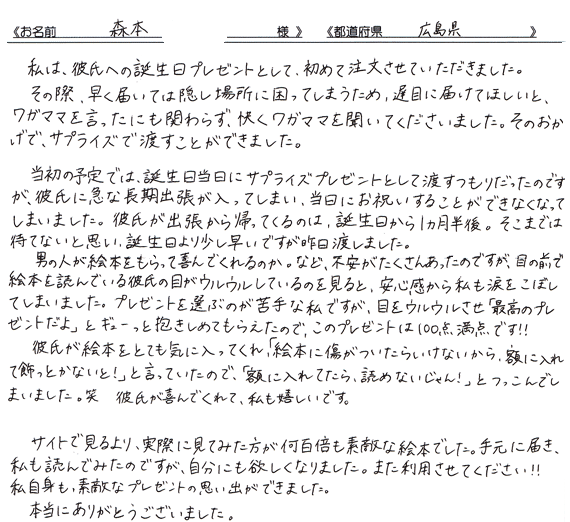 《お名前　森本　　　　様　》《都道府県　広島県　　　》
私は、彼氏への誕生日プレゼントとして、初めて注文させていただきました。
その際、早く届いては隠し場所に困ってしまうため、遅目に届けてほしいと、
ワガママを言ったにも関わらず、快くワガママを聞いてくださいました。そのおか
げで、サプライズで渡すことができました。
当初の予定では、誕生日当日にサプライズプレゼントとして渡すつもりだったのです
が、彼氏に急な長期出張が入ってしまい、当日にお祝いすることができなくなって
しまいました。彼氏が出張から帰ってくるのは、誕生日から1ヵ月半後。そこまでは
待てないと思い、誕生日より少し早いですが昨日渡しました。
男の人が絵本をもらって喜んでくれるのか。など、不安がたくさんあったのですが、目の前で
絵本を読んでいる彼氏の目がウルウルしているのを見ると、安心感から私も涙をこぼし
てしまいました。プレゼントを選ぶのが苦手な私ですが、目をウルウルさせ「最高のプレ
ゼントだよ」とギューっと抱きしめてもらえたので、このプレゼントは100点満点です!!
彼氏が絵本をとても気に入ってくれ、「絵本に傷がついたらいけないから、額に入れ
て飾っとかないと!」と言っていたので、「額に入れてたら、読めないじゃん!」とつっこんでし
まいました。笑　彼氏が喜んでくれて、私も嬉しいです。
サイトで見るより、実際に見てみた方が何百倍も素敵な絵本でした。手元に届き、
私も読んでみたのですが、自分にも欲しくなりました。また利用させてください!!
私自身も、素敵なプレゼントの思い出ができました。
本当にありがとうございました。